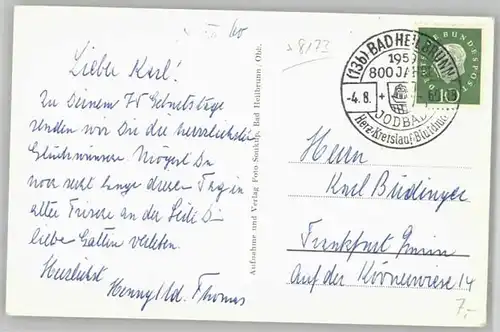 + 8173
Lieber Karl!
Zu Deinem 75 Geburtstage
senden wir Dir die herzlichsten
Glückwünsche. Mögest Du
noch recht lange diesen Tag in
alter Frische an der Seite D.
lieben Gattin verleben.
Herzlichst
Henny
Thomas
Aufnahme und Verlag Foto Bad Heilbrunn / Obb.
(13b) BAD HEILBRUNN
1959
800 JAHRE
-4.8.
JODBAD
Herz-Kreislauf-Blutdruck
DEUTSCHE BUNDESPOST
10
Herrn
Karl Büdinger
Frankfurt Main
Auf der Körnerwiese 14
7,-